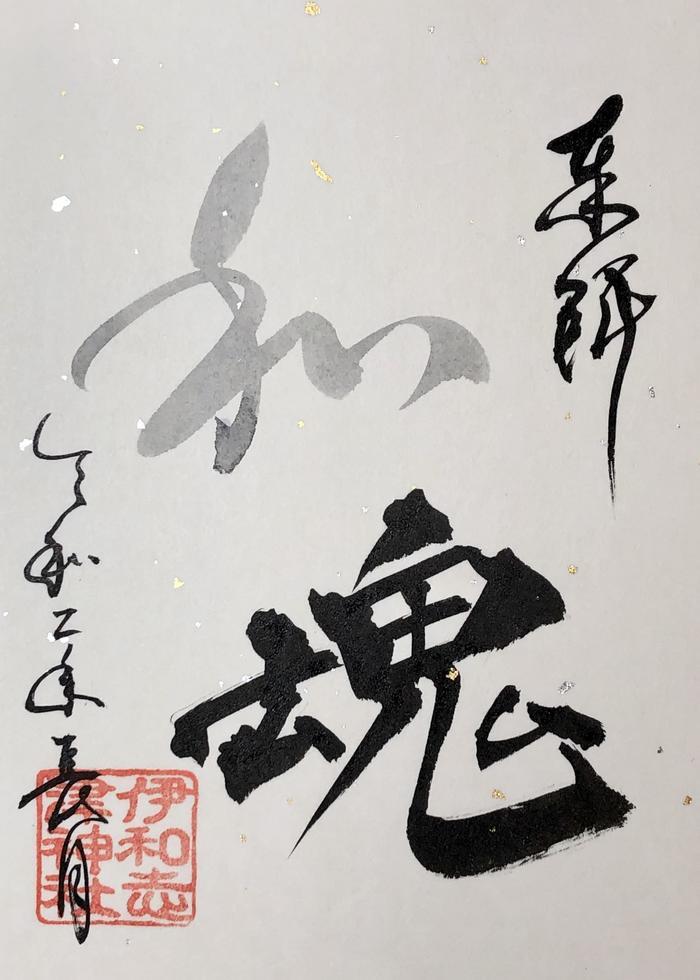 奉拝
和
魂
令和二年長月
伊和志
津神社